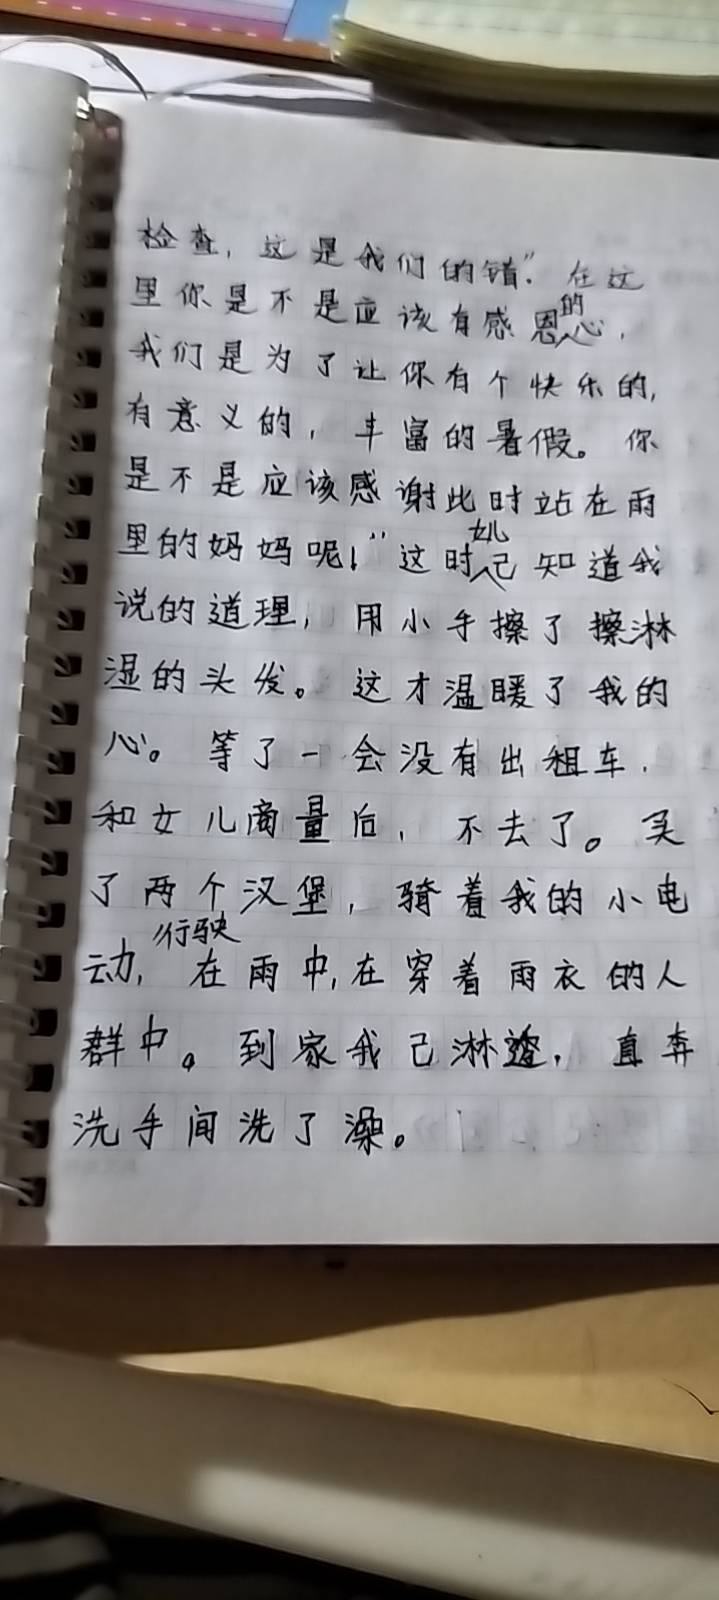 检查，这是我们的错”。在这
里你是不是应该有感恩的心，
我们是为了让你有个快乐的，
有意义的，丰富的暑假。你
是不是应该感谢此时站在雨
里的妈妈呢！”这时她己知道我
说的道理，用小手擦了擦淋
湿的头发。这才温暖了我的
心。等了一会没有出租车，
和女儿商量后，不去了。买
了两个汉堡，骑着我的小电
动，行驶在雨中，在穿着雨衣的人
群中。到家我己淋透，直奔
洗手间洗了澡。